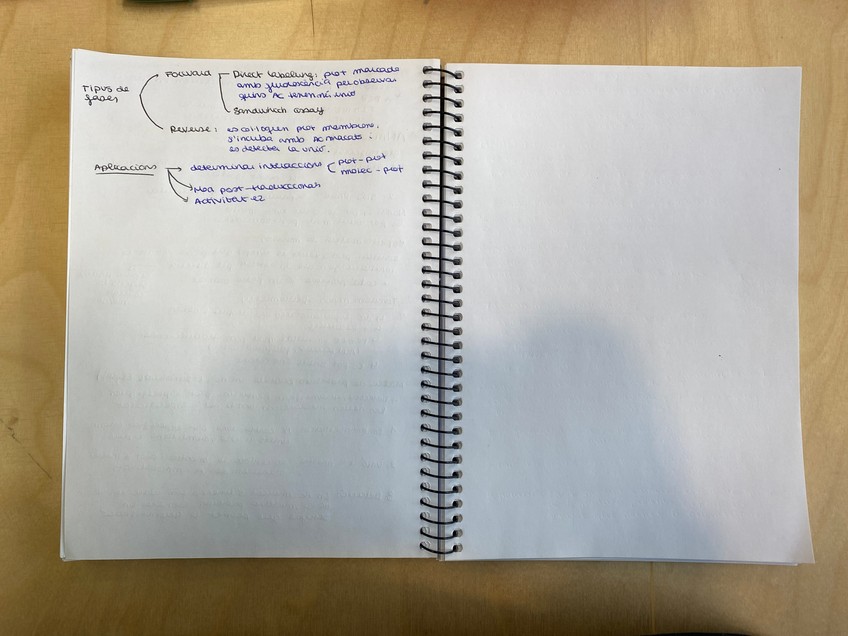 Tipus de
fases
Forward
Direct labelling: prot marcada
amb fluorescència per observar
quins AC tenen unió
Sandwich assay
Reverse: es col·loquen prot membrane.
s'incuba amb AC marcats.
es detecta la unió.
Aplicacions → determinar interaccions
prot-prot
molec-prot
Mod post-traduccionals
Activitat ez